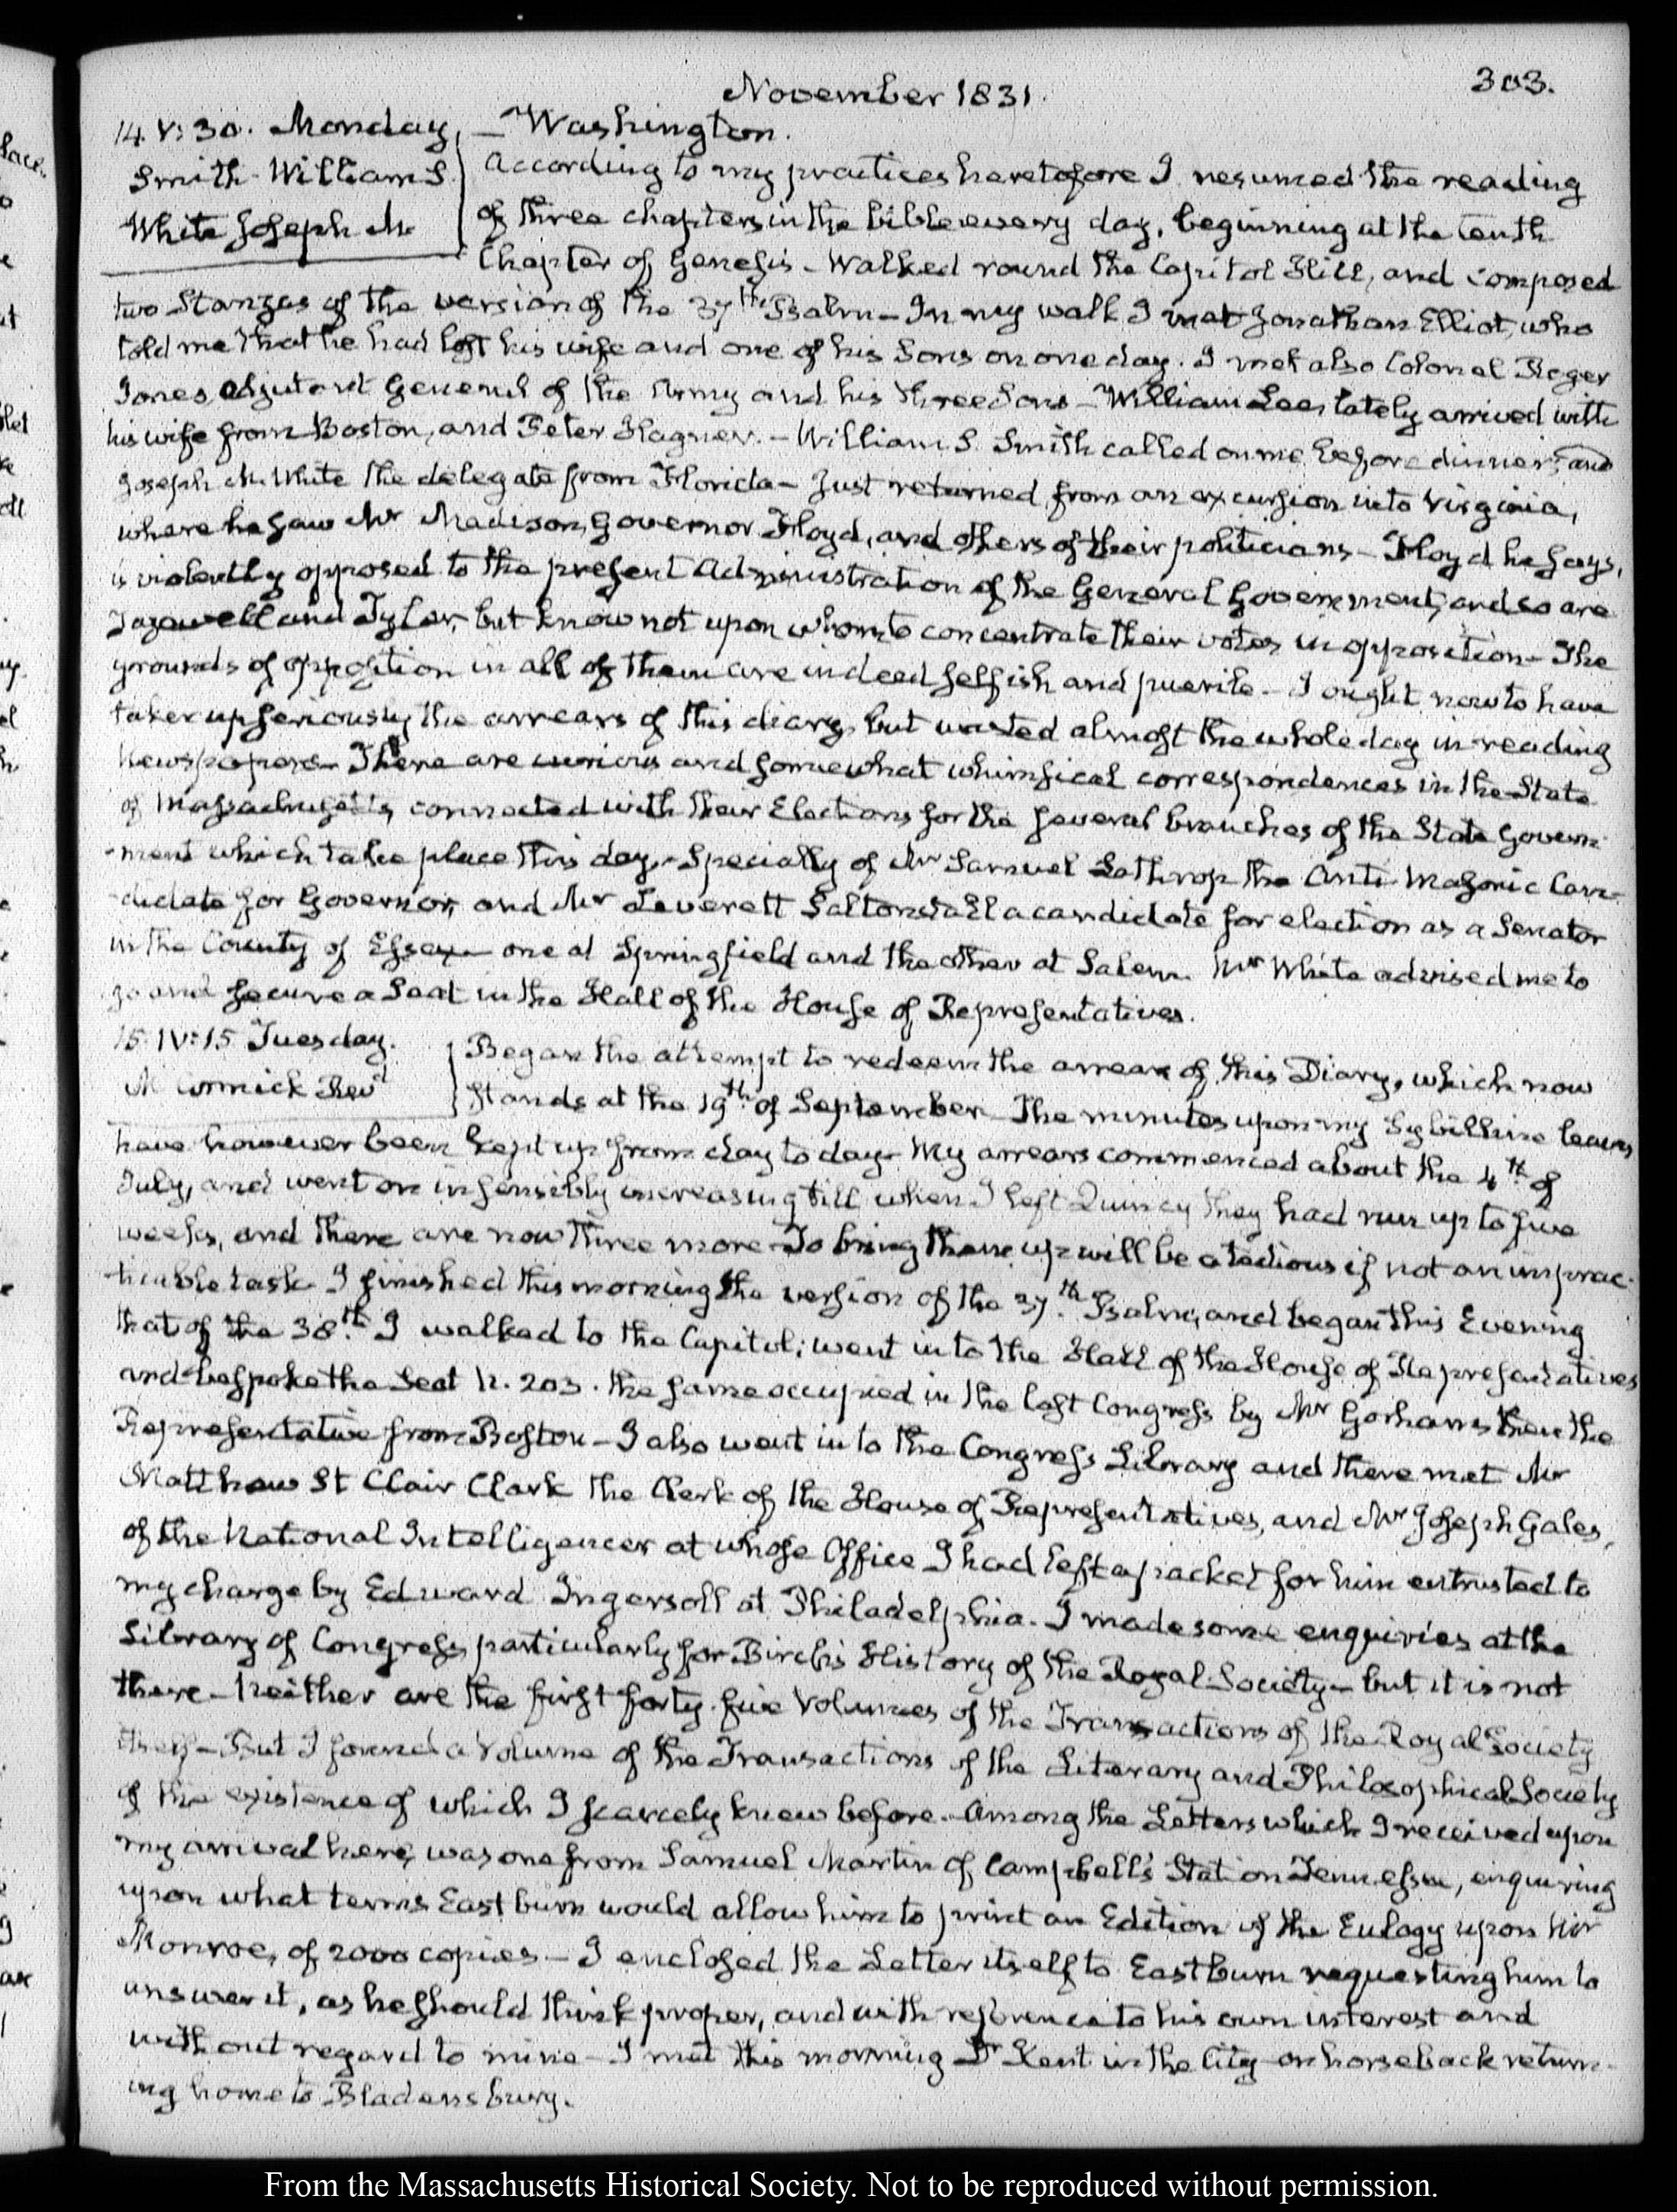 November 1831.
303.
14. V:30. Monday, — Washington.
Smith William S.
White Joseph M.
According to my practices heretofore I resumed the reading
of three chapters in the bible every day, beginning at the tenth
Chapter of Genesis – Walked round the Capitol Hill, and composed
two Stanzas of the version of the 37th Psalm – In my walk I met Jonathan Elliot, who
told me that he had lost his wife and one of his Sons on one day. I met also Colonel Roger
Jones, Adjutant General of the Army and his three Sons – William Lee, lately arrived with
his wife from Boston, and Peter Hagner. – William S. Smith called on me before dinner, and
Joseph M. White the delegate from Florida – Just returned from an excursion into Virginia,
where he saw Mr Madison, Governor Floyd, and others of their politicians – Floyd he says,
is violently opposed to the present Administration of the General Government, and so are
Tazewell and Tyler, but know not upon whom to concentrate their votes in opposition – The
grounds of opposition in all of them are indeed selfish and puerile – I ought now to have
taken up seriously the arrears of this diary, but wasted almost the whole day in reading
Newspapers – There are curious and somewhat whimsical correspondences in the State
of Massachusetts, connected with their Elections for the several branches of the State Govern-
-ment which take place this day. Specially of Mr Samuel Lathrop the Anti-Masonic Can-
-didate for Governor, and Mr Leverett Saltonstall a candidate for election as a Senator
in the County of Essex – one at Springfield and the other at Salem. Mr White advised me to
go and secure a Seat in the Hall of the House of Representatives.
15. IV:15 Tuesday.
McCormick Revd
Began the attempt to redeem the arrears of this Diary, which now
stands at the 19th of September – The minutes upon my Sybilline leaves
have however been kept up from day to day – My arrears commenced about the 4th of
July, and went on insensibly increasing till when I left Quincy they had run up to five
weeks, and there are now three more – To bring them up will be a tedious if not an imprac-
-ticable task – I finished this morning the version of the 37th Psalm, and began this Evening
that of the 38th I walked to the Capitol; went in to the Hall of the House of Representatives
and bespoke the Seat N. 203. the same occupied in the last Congress by Mr Gorham then the
Representative from Boston – I also went in to the Congress Library and there met Mr
Matthew St Clair Clark the Clerk of the House of Representatives, and Mr Joseph Gales,
of the National Intelligencer at whose Office I had left a packet for him entrusted to
my charge by Edward Ingersoll at Philadelphia. I made some enquiries at the
Library of Congress particularly for Birch's History of the Royal Society – but it is not
there – Neither are the first forty-five Volumes of the Transactions of the Royal Society
itself – But I found a Volume of the Transactions of the Literary and Philosophical Society
of the existence of which I scarcely knew before. Among the Letters which I received upon
my arrival here, was one from Samuel Martin of Campbell's Station Tennessee, enquiring
upon what terms Eastburn would allow him to print an Edition of the Eulogy upon Mr
Monroe, of 2000 copies – I enclosed the Letter itself to Eastburn requesting him to
answer it, as he should think proper, and with reference to his own interest and
without regard to mine – I met this morning Dr Kent in the City on horseback return-
ing home to Bladensburg.
From the Massachusetts Historical Society. Not to be reproduced without permission.